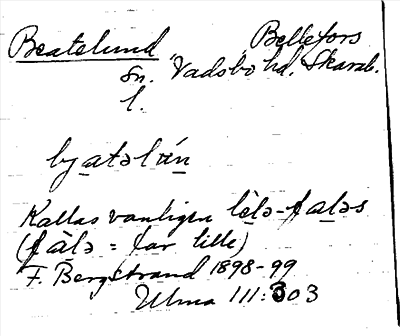 Beatelund Bellefors
Sn. Vadsbo hd. Skarab.
l.
byatəlún
Kallas vanligen lèlə-falas
(fàlə = far lille)
F. Bergstrand 1898-99
Ulma 111:303